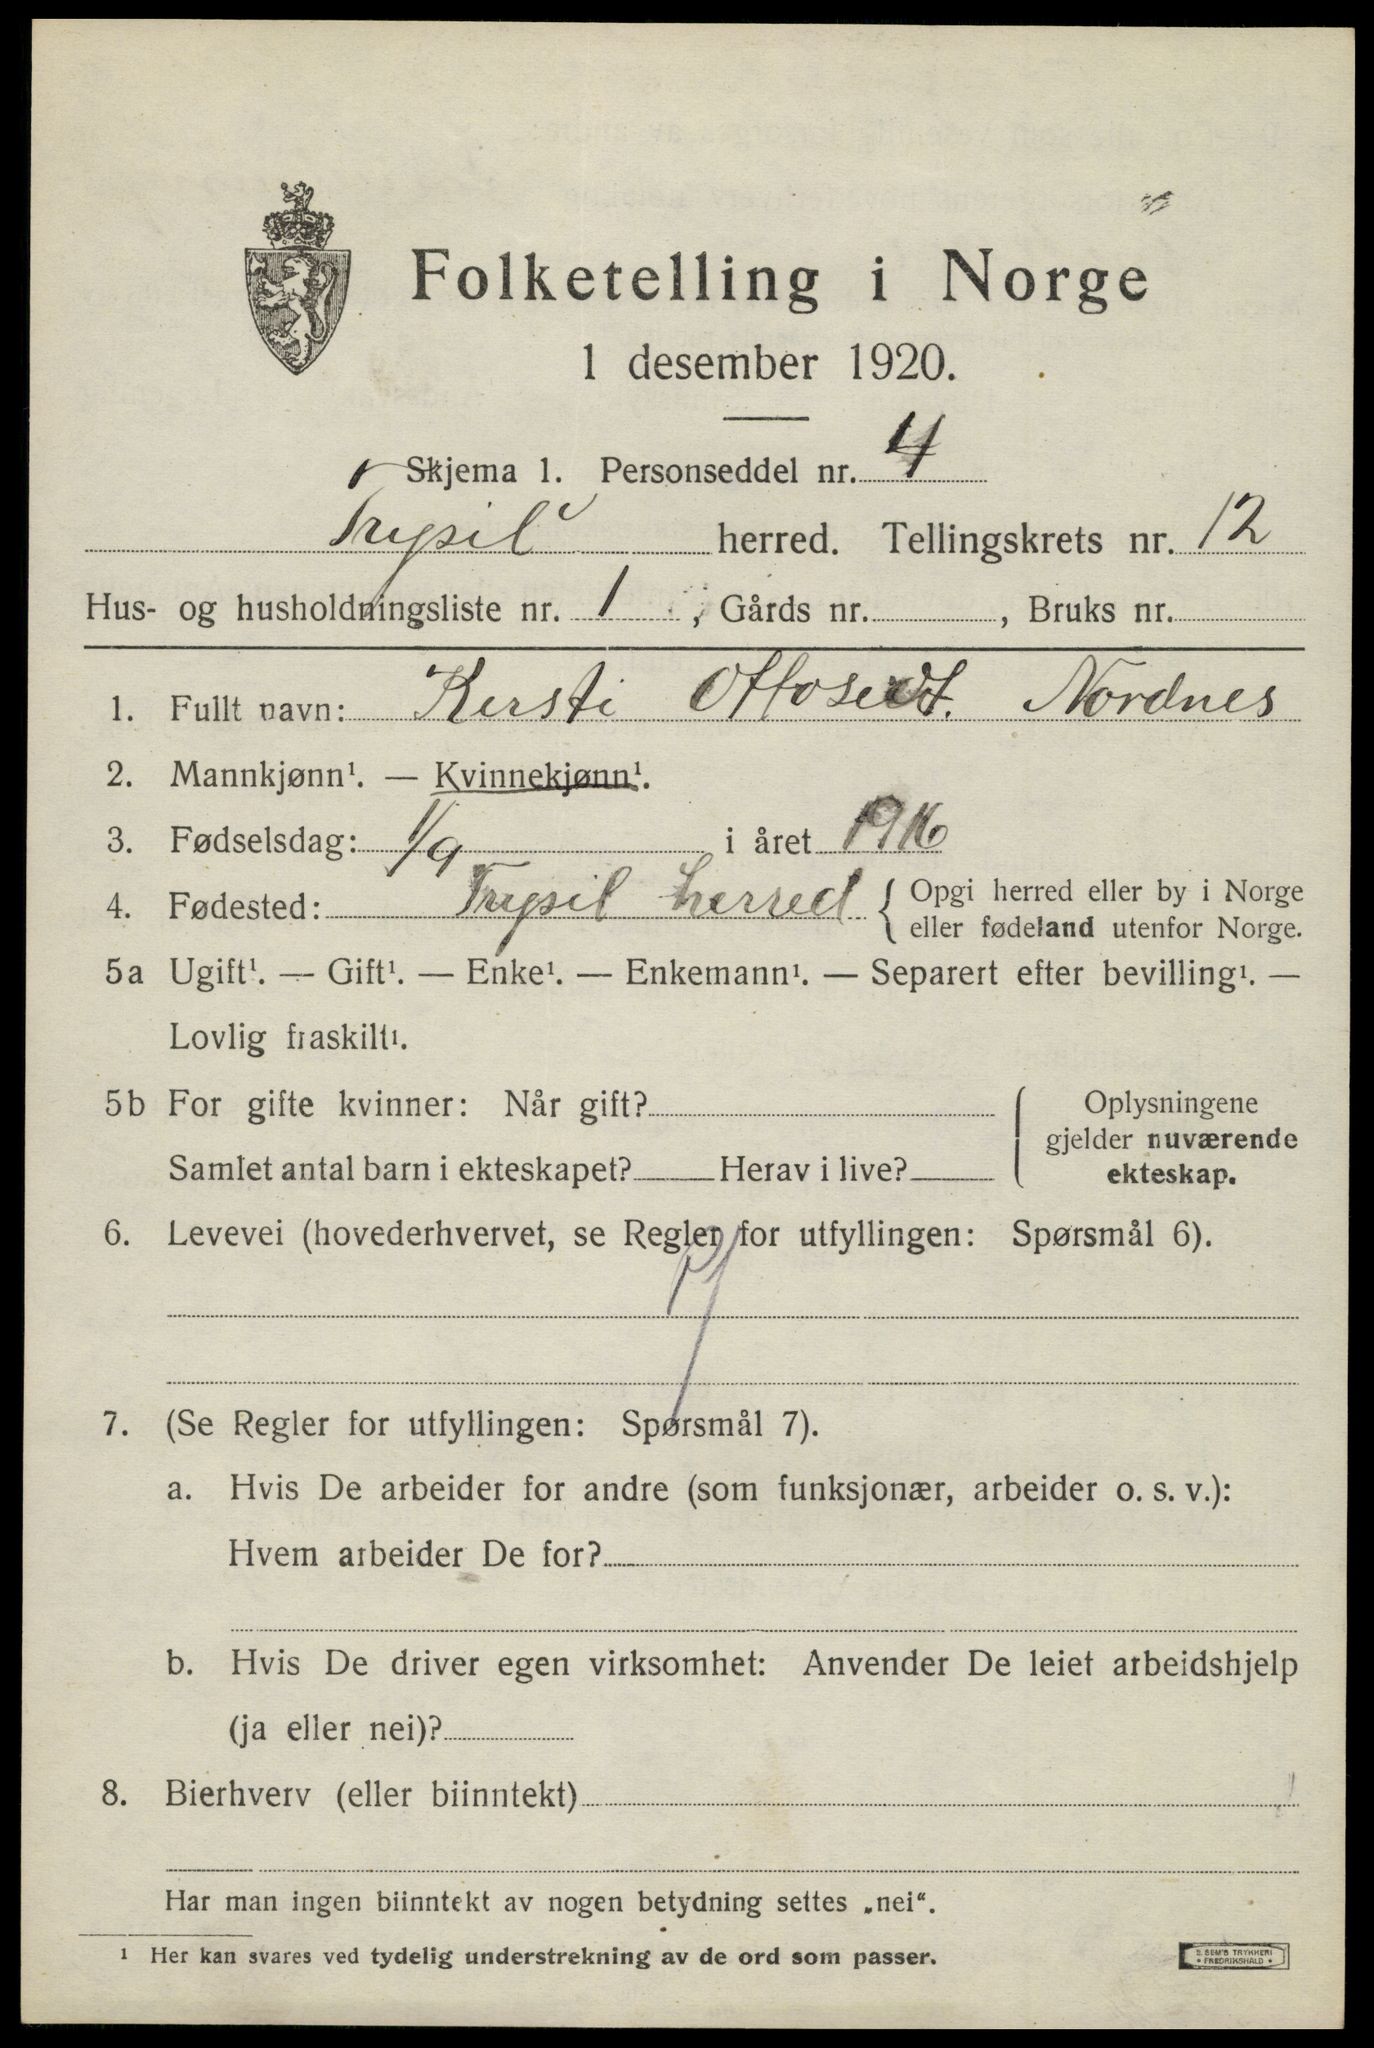 Folketelling i Norge
1 desember 1920.
Skjema 1. Personseddel nr. 4
Trysil herred. Tellingskrets nr. 12
Hus- og husholdningsliste nr. 1, Gårds nr. , Bruks nr.
1. Fullt navn: Kersti Nordnes
2. Mannkjønn¹. — Kvinnekjønn¹.
3. Fødselsdag: 1/9 i året 1916
4. Fødested: Trysil herred { Opgi herred eller by i Norge
eller fødeland utenfor Norge.
5a Ugift¹. — Gift¹. — Enke¹. — Enkemann¹. — Separert efter bevilling¹. —
Lovlig fraskilt¹.
5b For gifte kvinner: Når gift? { Oplysningene
gjelder nuværende
Samlet antal barn i ekteskapet? Herav i live? ekteskap.
6. Levevei (hovederhvervet, se Regler for utfyllingen: Spørsmål 6).
7. (Se Regler for utfyllingen: Spørsmål 7).
a. Hvis De arbeider for andre (som funksjonær, arbeider o. s. v.):
Hvem arbeider De for?
b. Hvis De driver egen virksomhet: Anvender De leiet arbeidshjelp
(ja eller nei)?
8. Bierhverv (eller biinntekt)
Har man ingen biinntekt av nogen betydning settes „nei“.
¹ Her kan svares ved tydelig understrekning av de ord som passer.
E. SEM'S TRYKKERI
• FREDRIKSHALD •